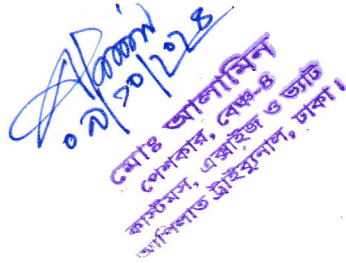 ০৯/১০/২০২৪
মোঃ আলামিন
পেশকার, বেঞ্চ-৪
কাস্টমস, এক্সাইজ ও ভ্যাট
আপিলাত ট্রাইব্যুনাল, ঢাকা।